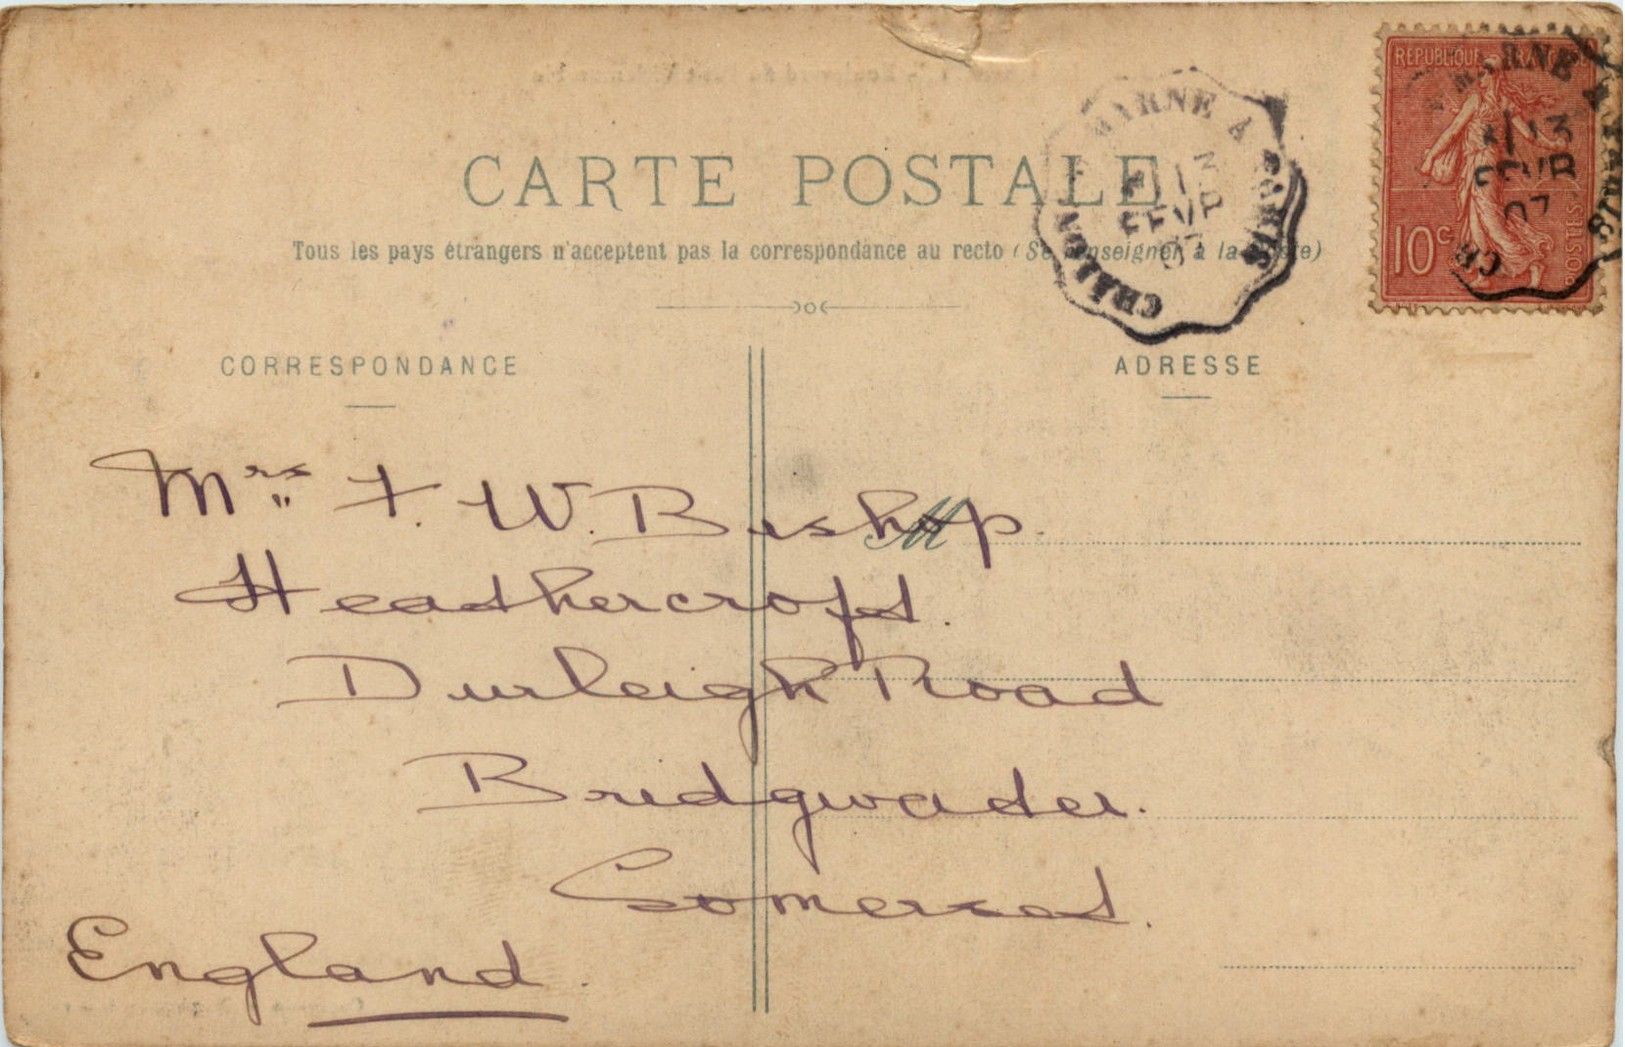 CARTE POSTALE
Tous les pays étrangers n'acceptent pas la correspondance au recto (Se renseigner à la Poste)
CORRESPONDANCE
ADRESSE
RÉPUBLIQUE FRANÇAISE
10c
POSTES
CHALONS MARNE A PARIS
13
FEVR
07
MARNE A PARIS
13
FEVR
07
M
Mrs F. W. Bishop.
Heathercroft.
Durleigh Road
Bridgwater.
Somerset.
England.